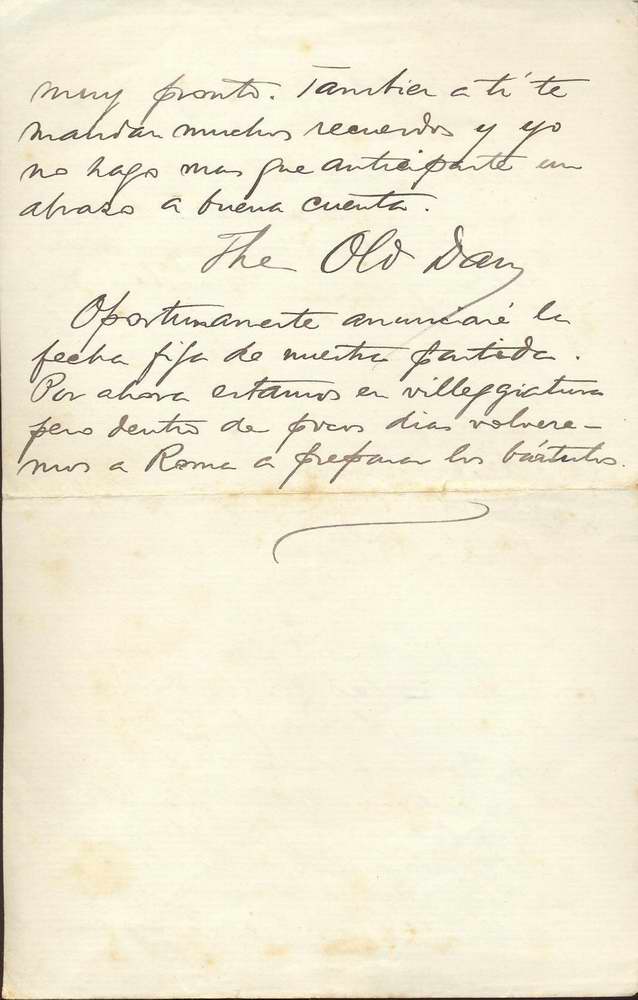 muy pronto. Tambien a tí te
mandan muchos recuerdos y yo
no hago mas que anticiparte un
abrazo a buena cuenta.
The Old Dan
Oportunamente anunciaré la
fecha fija de nuestra partida.
Por ahora estamos en villeggiatura
pero dentro de pocos dias volvere-
mos a Roma a preparar los bártulos.